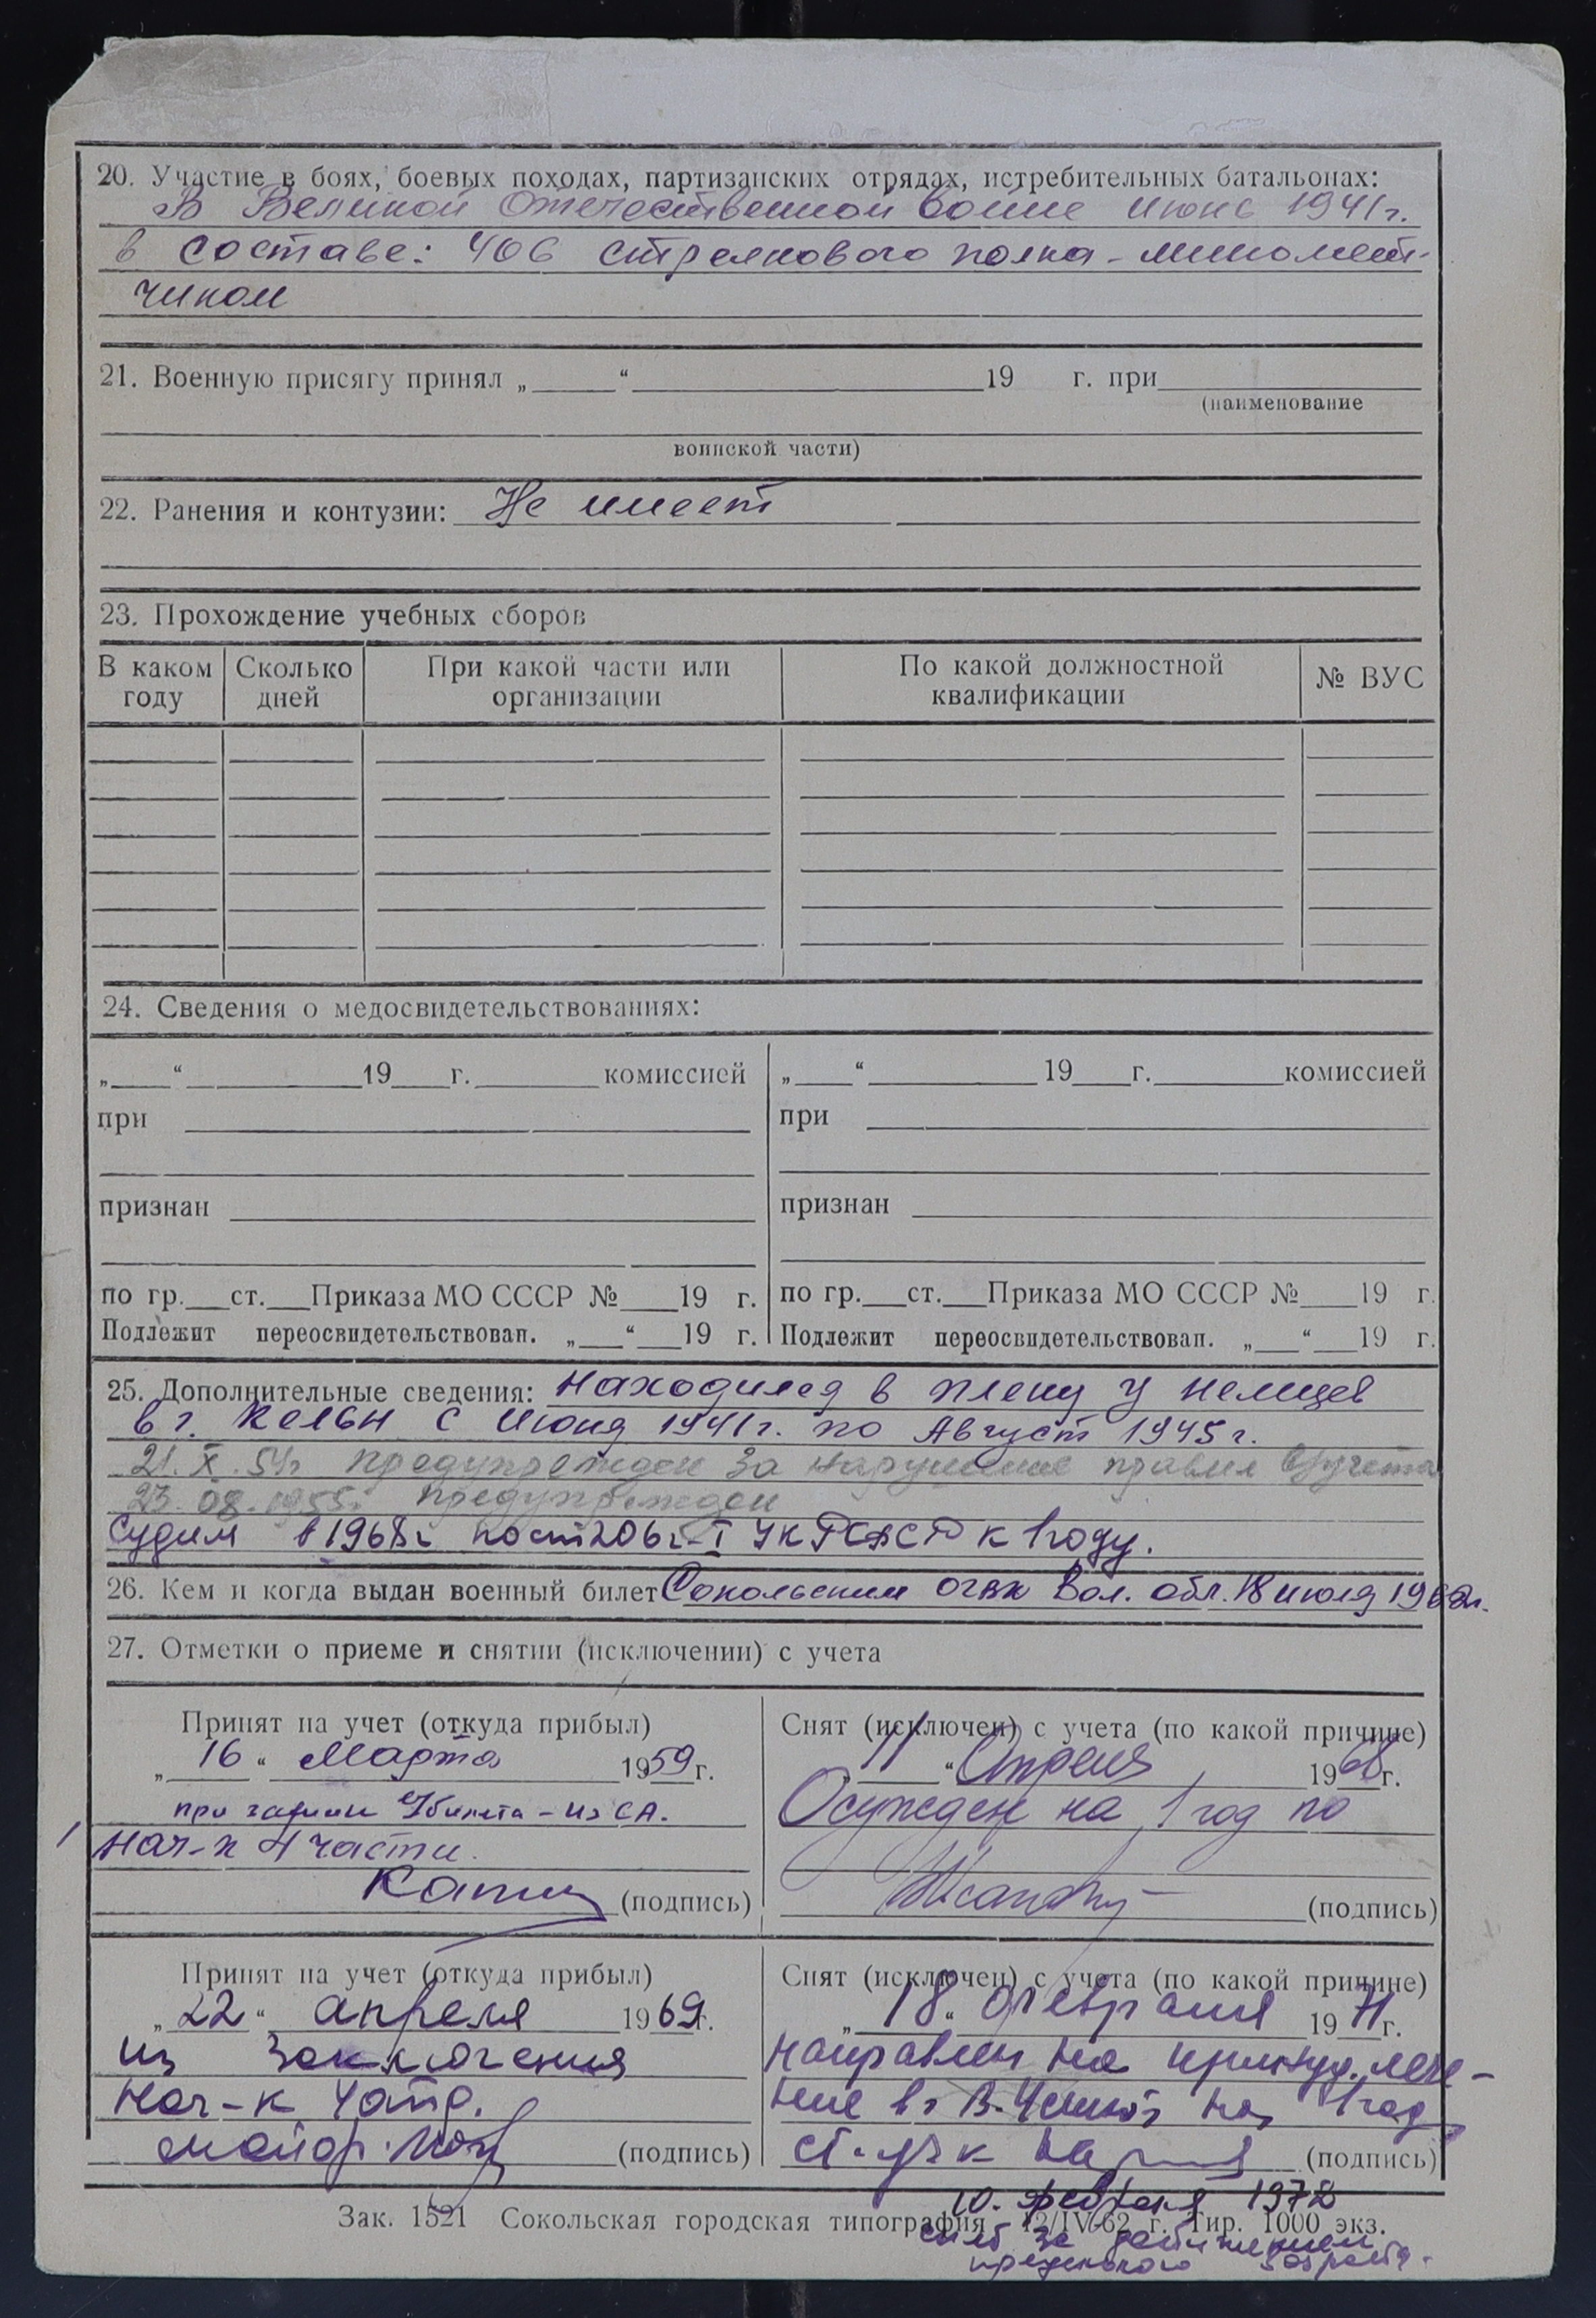 20. Участие в боях, боевых походах, партизанских отрядах, истребительных батальонах:
В Великой Отечественной войне июнь 1941г.
в составе: 406 стрелкового полка - миномет-
чиком
21. Военную присягу принял „ “ 19 г. при
(наименование
воинской части)
22. Ранения и контузии: Не имеет
23. Прохождение учебных сборов
В каком году Сколько дней При какой части или организации По какой должностной квалификации № ВУС
24. Сведения о медосвидетельствованиях:
„ “ 19 г. комиссией „ “ 19 г. комиссией
при при
признан признан
по гр. ст. Приказа МО СССР № 19 г. по гр. ст. Приказа МО СССР № 19 г.
Подлежит переосвидетельствован. „ “ 19 г. Подлежит переосвидетельствован. „ “ 19 г.
25. Дополнительные сведения: Находился в плену у немцев
в г. Кельн с Июня 1941г. по Август 1945г.
21.X.54г предупрежден за нарушение правил в/учета
23.08.1955г предупрежден
Судим в 1968г по ст 206 ч-I УК РСФСР к 1 году.
26. Кем и когда выдан военный билет Сокольским ОГВК Вол. обл. 18 июля 1962г.
27. Отметки о приеме и снятии (исключении) с учета
Принят на учет (откуда прибыл)
„ 16 “ Марта 1959г.
при в/билета - из СА.
Нач-к 4 части
(подпись)
Снят (исключен) с учета (по какой причине)
„ 11 “ Апреля 1968г.
Осужден на 1 год по
(подпись)
Принят на учет (откуда прибыл)
„ 22 “ апреля 1969г.
из заключения
Нач-к 4 отд.
майор (подпись)
Снят (исключен) с учета (по какой причине)
„ 18 “ февраля 1971г.
направлен на принуд. лече-
ние в г В. Устюг на 1 год
(подпись)
10. февраля 1972
Зак. 1521 Сокольская городская типография 12/IV-62 г. Тир. 1000 экз.
снят за достижением
предельного возраста.